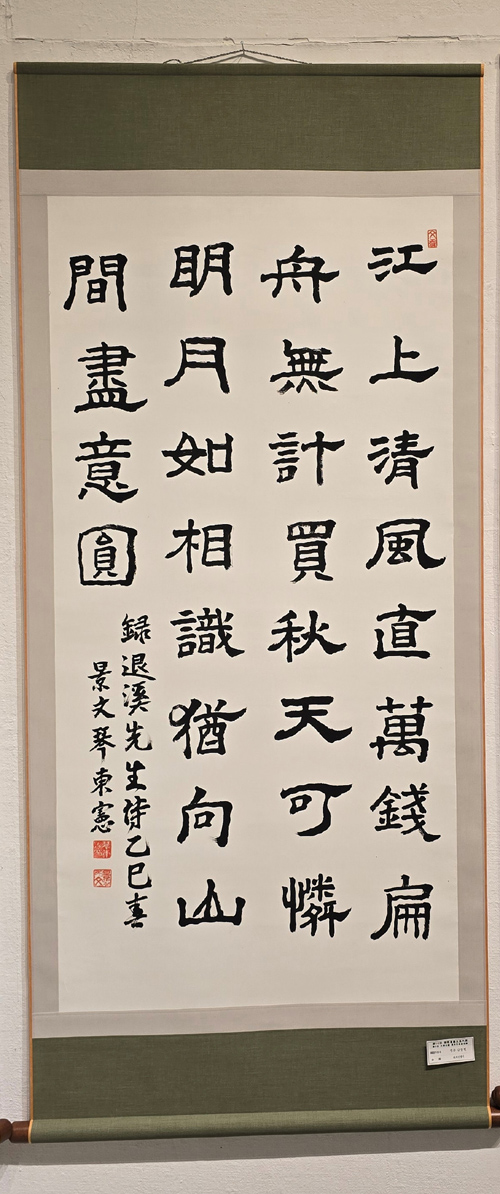 江上清風直萬錢扁
舟無計買秋天可憐
明月如相識猶向山
間盡意圓
録退溪先生詩乙巳喜
景文琴東憲